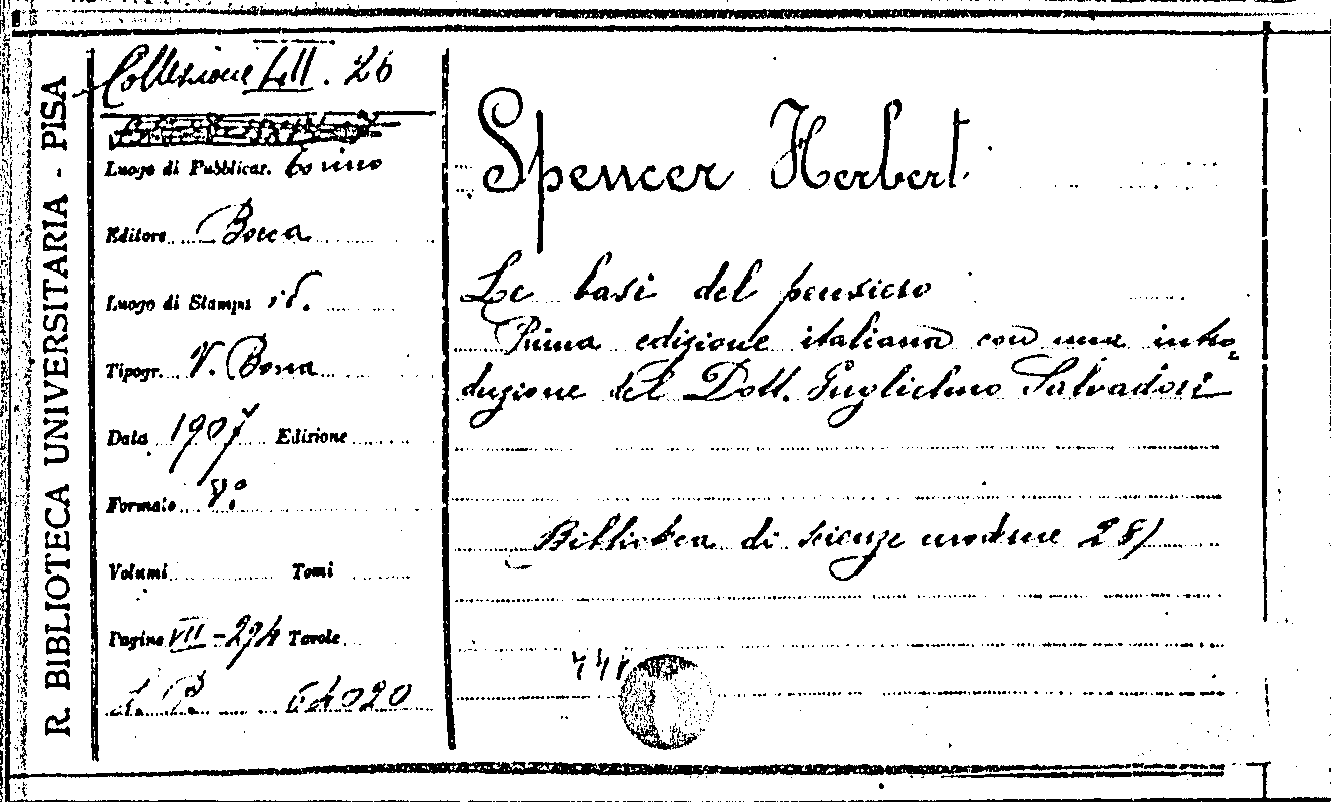 R. BIBLIOTECA UNIVERSITARIA - PISA
Collezione LII. 26
Luogo di Pubblicaz. Torino
Editore Bocca
Luogo di Stampa id.
Tipogr. V. Bona
Data 1907 Edizione
Formato 8°
Volumi Tomi
Pagine VII-274 Tavole
64020
Spencer Herbert
Le basi del pensiero
Prima edizione italiana con una intro-
duzione del Dott. Guglielmo Salvadori
Biblioteca di scienze moderne 28)